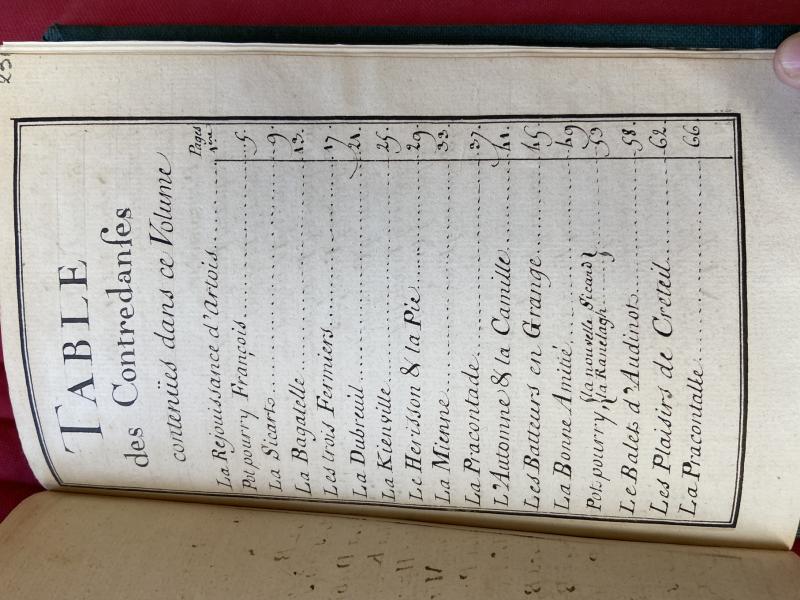 23
TABLE
des Contredanſes
contenües dans ce Volume
Pages
La Rejouissance d'Artois 1.re
Pot pourry François 5.
La Sicarto 9.
La Bagatelle 13.
Les trois Fermiers 17.
La Dubreuil 21.
La Kienville 25.
Le Herisson & la Pie 29.
La Mienne 33.
La Pracontade 37.
L'Automne & la Camille 41.
Les Batteurs en Grange 45.
La Bonne Amitié 49
Pot pourry, {la nouvelle Sicard} {la Ranelagh} 53
Le Balet d'Audinot 58.
Les Plaisirs de Creteil 62.
La Pracontalle 66.